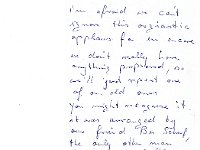 I'm afraid we can't
ignore this orgiastic
applause for an encore
we don't really have
anything prepared, so
we'll just repeat one
of our old ones
You might recognise it
it was arranged by
our friend Ben
the only other man